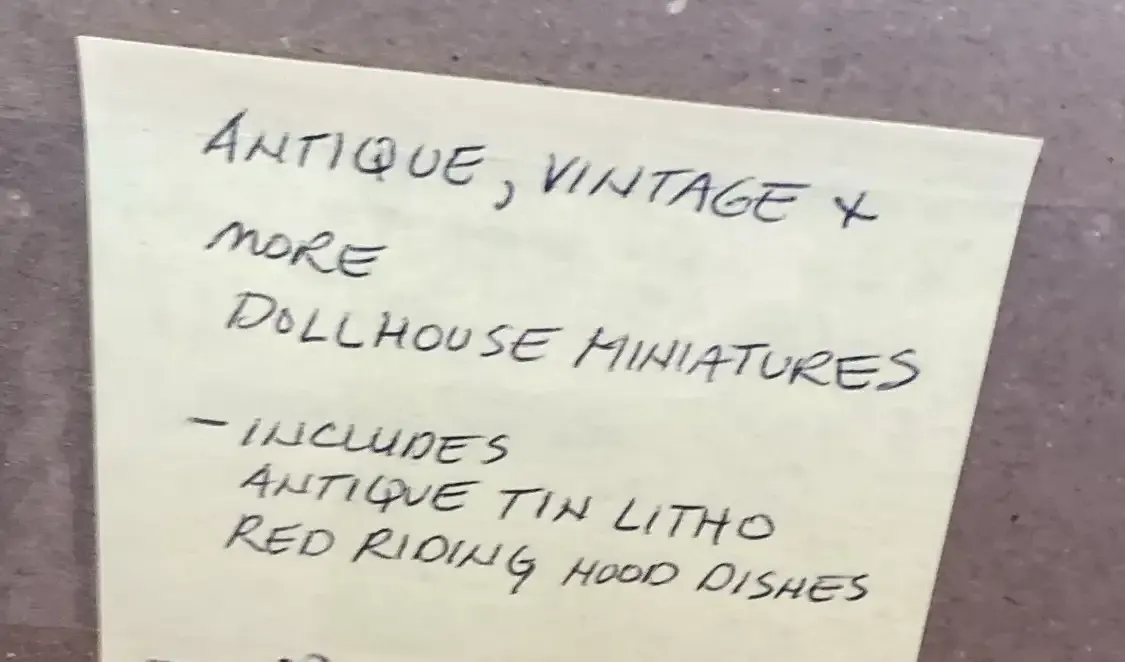 ANTIQUE, VINTAGE &
MORE
DOLLHOUSE MINIATURES
- INCLUDES
ANTIQUE TIN LITHO
RED RIDING HOOD DISHES